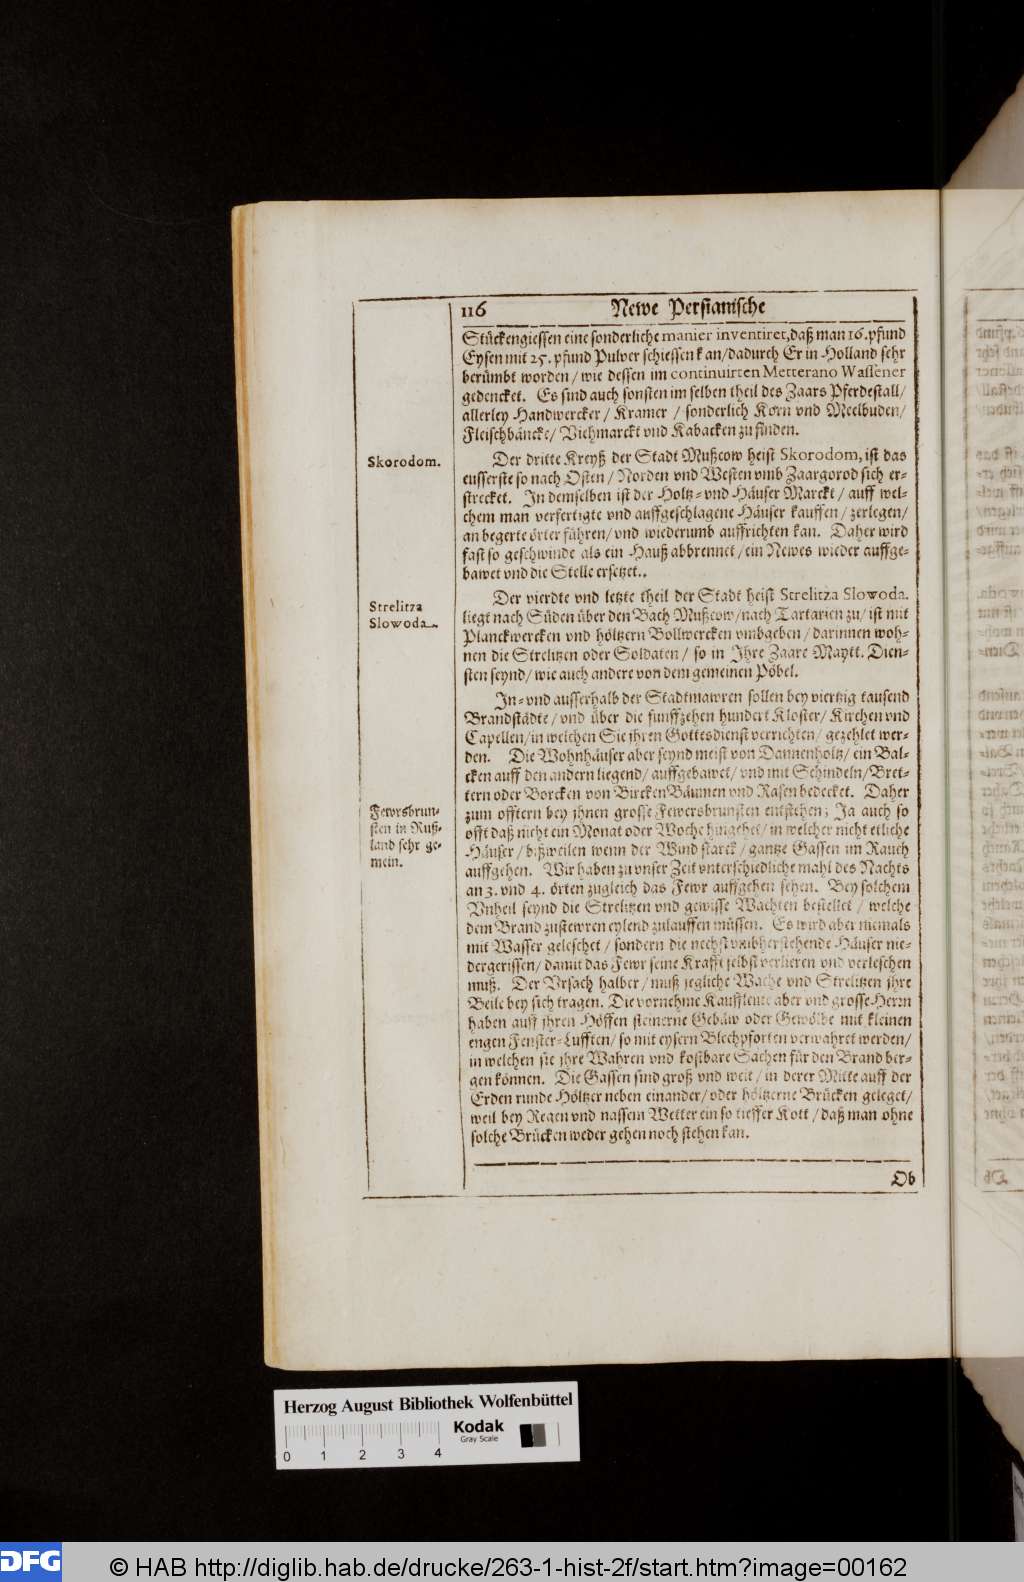 116 Newe Persianische
Stückengiessen eine sonderliche manier inventiret, daß man 16. pfund
Eysen mit 25. pfund Pulver schiessen kan/ dadurch Er in Holland sehr
berümbt worden / wie dessen im continuirten Metterano Wassener
gedencket. Es sind auch sonsten im selben theil des Zaars Pferdestall/
allerley Handwercker / Kramer / sonderlich Korn vnd Meelbuden/
Fleischbäncke/ Viehmarckt vnd Kabacken zu finden.
Skorodom.
Der dritte Kreyß der Stadt Mußcow heist Skorodom, ist das
eusserste so nach Osten / Norden vnd Westen vmb Zaargorod sich er-
strecket. In demselben ist der Holtz- vnd Häuser Marckt / auff wel-
chem man verfertigte vnd auffgeschlagene Häuser kauffen / zerlegen/
an begerte örter führen/ vnd wiederumb auffrichten kan. Daher wird
fast so geschwinde als ein Hauß abbrennet / ein Newes wieder auffge-
bawet vnd die Stelle ersetzet..
Strelitza
Slowoda.
Der vierdte vnd letzte theil der Stadt heist Strelitza Slowoda.
liegt nach Süden über den Bach Mußcow/ nach Tartarien zu/ ist mit
Planckwercken vnd höltzern Bollwercken vmbgeben / darinnen woh-
nen die Strelitzen oder Soldaten / so in Ihre Zaare Maytt. Dien-
sten seynd/ wie auch andere von dem gemeinen Pöbel.
In- vnd ausserhalb der Stadtmawren sollen bey viertzig tausend
Brandstädte / vnd über die funffzehen hundert Kloster/ Kirchen vnd
Capellen/ in welchen Sie ihren Gottesdienst verrichten/ gezehlet wer-
den. Die Wohnhäuser aber seynd meist von Dannenholtz/ ein Bal-
cken auff den andern liegend/ auffgebawet/ vnd mit Schindeln/ Bret-
tern oder Borcken von Bircken Bäumen vnd Rasen bedecket. Daher
Fewrsbrun-
sten in Ruß-
land sehr ge-
mein.
zum offtern bey ihnen grosse Fewersbrunsten entstehen; Ja auch so
offt daß nicht ein Monat oder Woche hingehet/ in welcher nicht etliche
Häuser / bißweilen wenn der Wind starck / gantze Gassen im Rauch
auffgehen. Wir haben zu vnser Zeit vnterschiedliche mahl des Nachts
an 3. vnd 4. örten zugleich das Fewr auffgehen sehen. Bey solchem
Vnheil seynd die Strelitzen vnd gewisse Wachten bestellet / welche
dem Brand zustewren eylend zulauffen müssen. Es wird aber niemals
mit Wasser geleschet / sondern die nechst vmbherstehende Häuser nie-
dergerissen/ damit das Fewr seine Krafft selbst verlieren vnd verleschen
muß. Der Vrsach halber / muß jegliche Wache vnd Strelitzen ihre
Beile bey sich tragen. Die vornehme Kauffleute aber vnd grosse Herrn
haben auff ihren Höffen steinerne Gebäw oder Gewölbe mit kleinen
engen Fenster-Lufften/ so mit eysern Blechpforten verwahret werden/
in welchen sie ihre Wahren vnd kostbare Sachen für den Brand ber-
gen können. Die Gassen sind groß vnd weit / in derer Mitte auff der
Erden runde Höltzer neben einander/ oder höltzerne Brücken geleget/
weil bey Regen vnd nassem Wetter ein so tieffer Kott / daß man ohne
solche Brücken weder gehen noch stehen kan.
Ob
Herzog August Bibliothek Wolfenbüttel
Kodak
Gray Scale
0 1 2 3 4
DFG © HAB http://diglib.hab.de/drucke/263-1-hist-2f/start.htm?image=00162